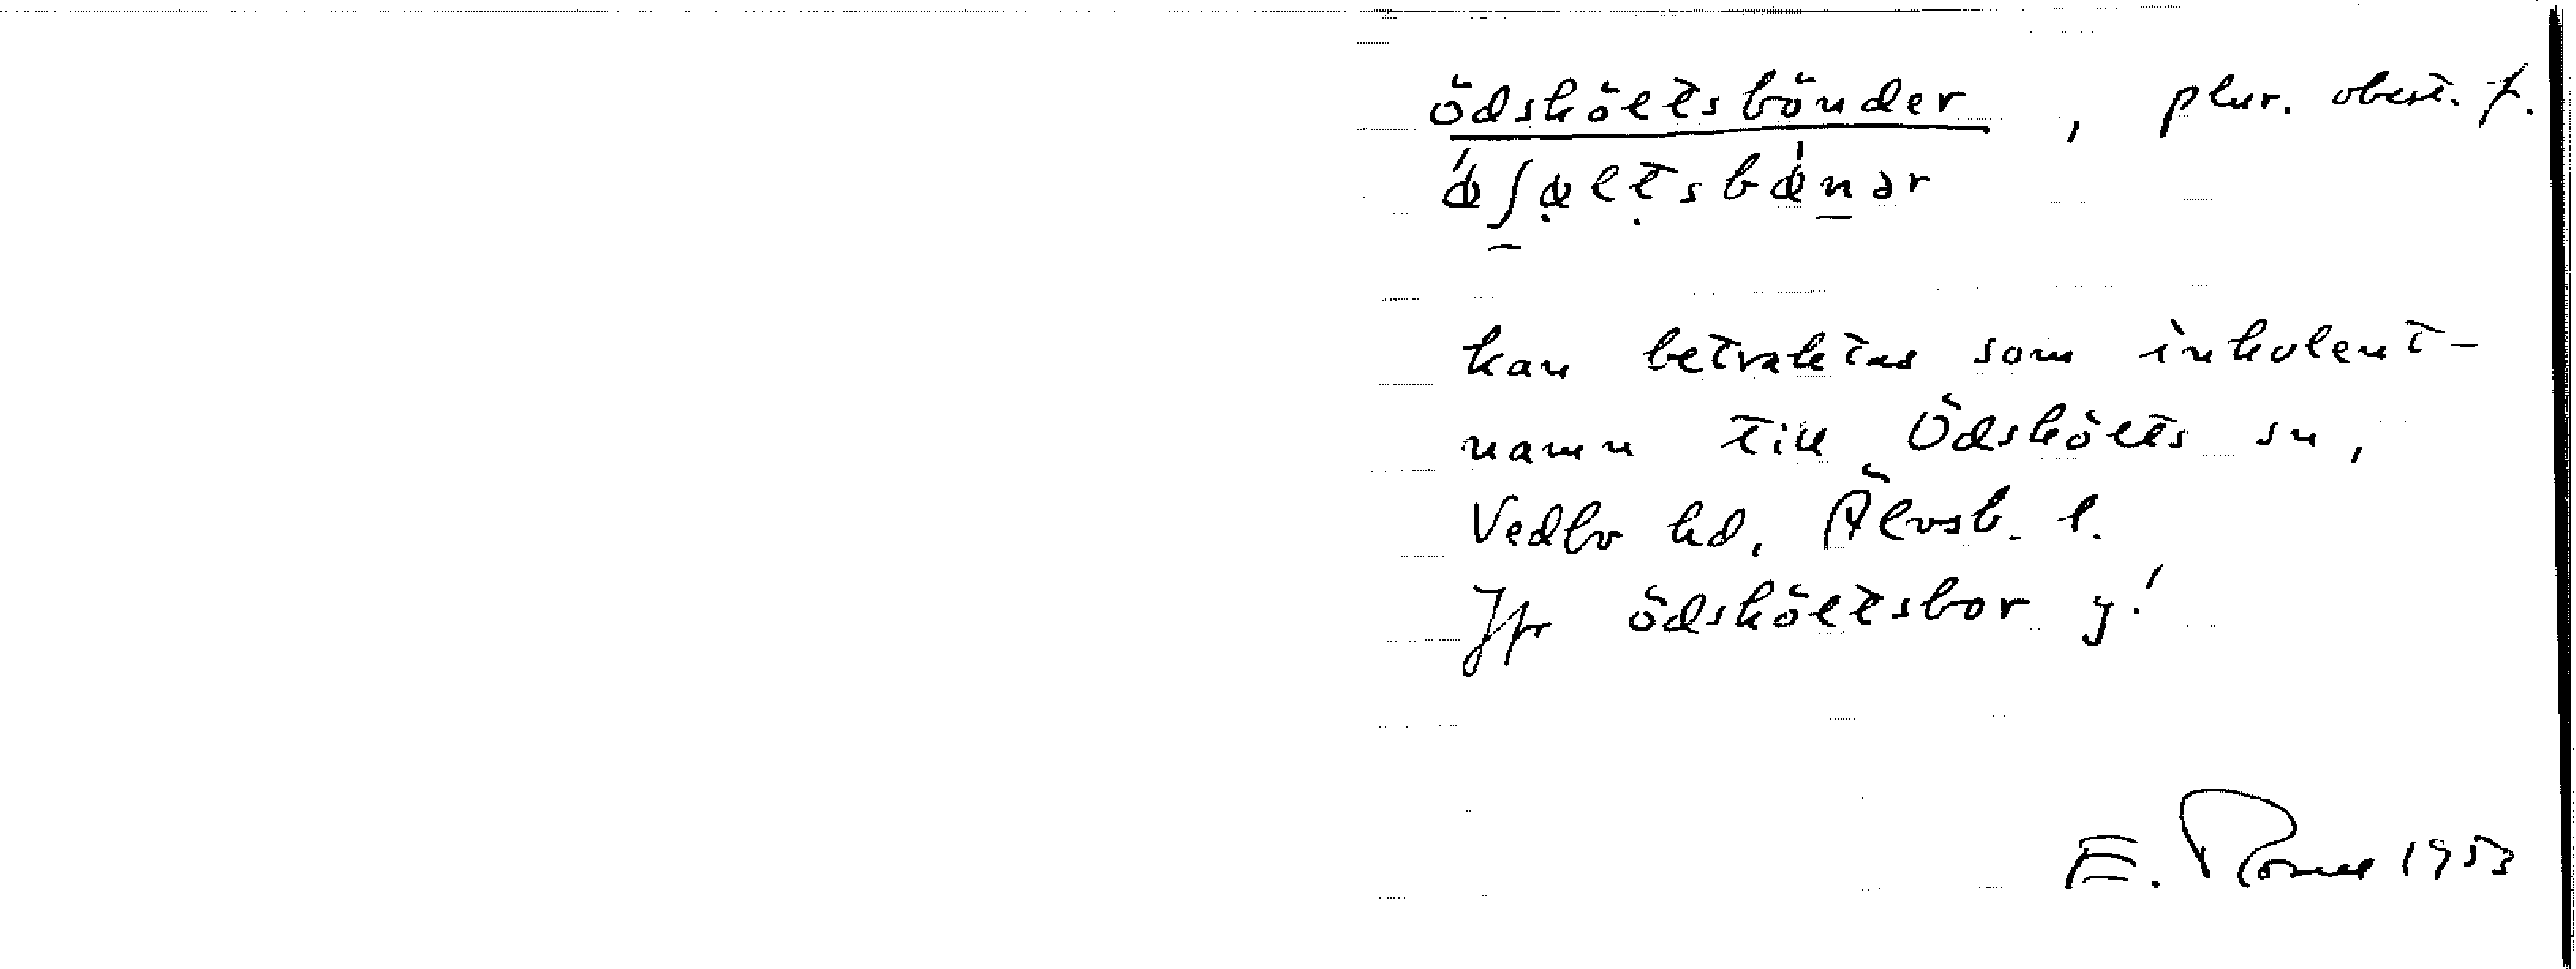 ödsköltsbönder, plur. obest. f.
kan betraktas som inkolent-
namn till Ödskölts sn,
Vedbo hd, Älvsb. l.
Jfr ödsköltsbor y!
E. 1953